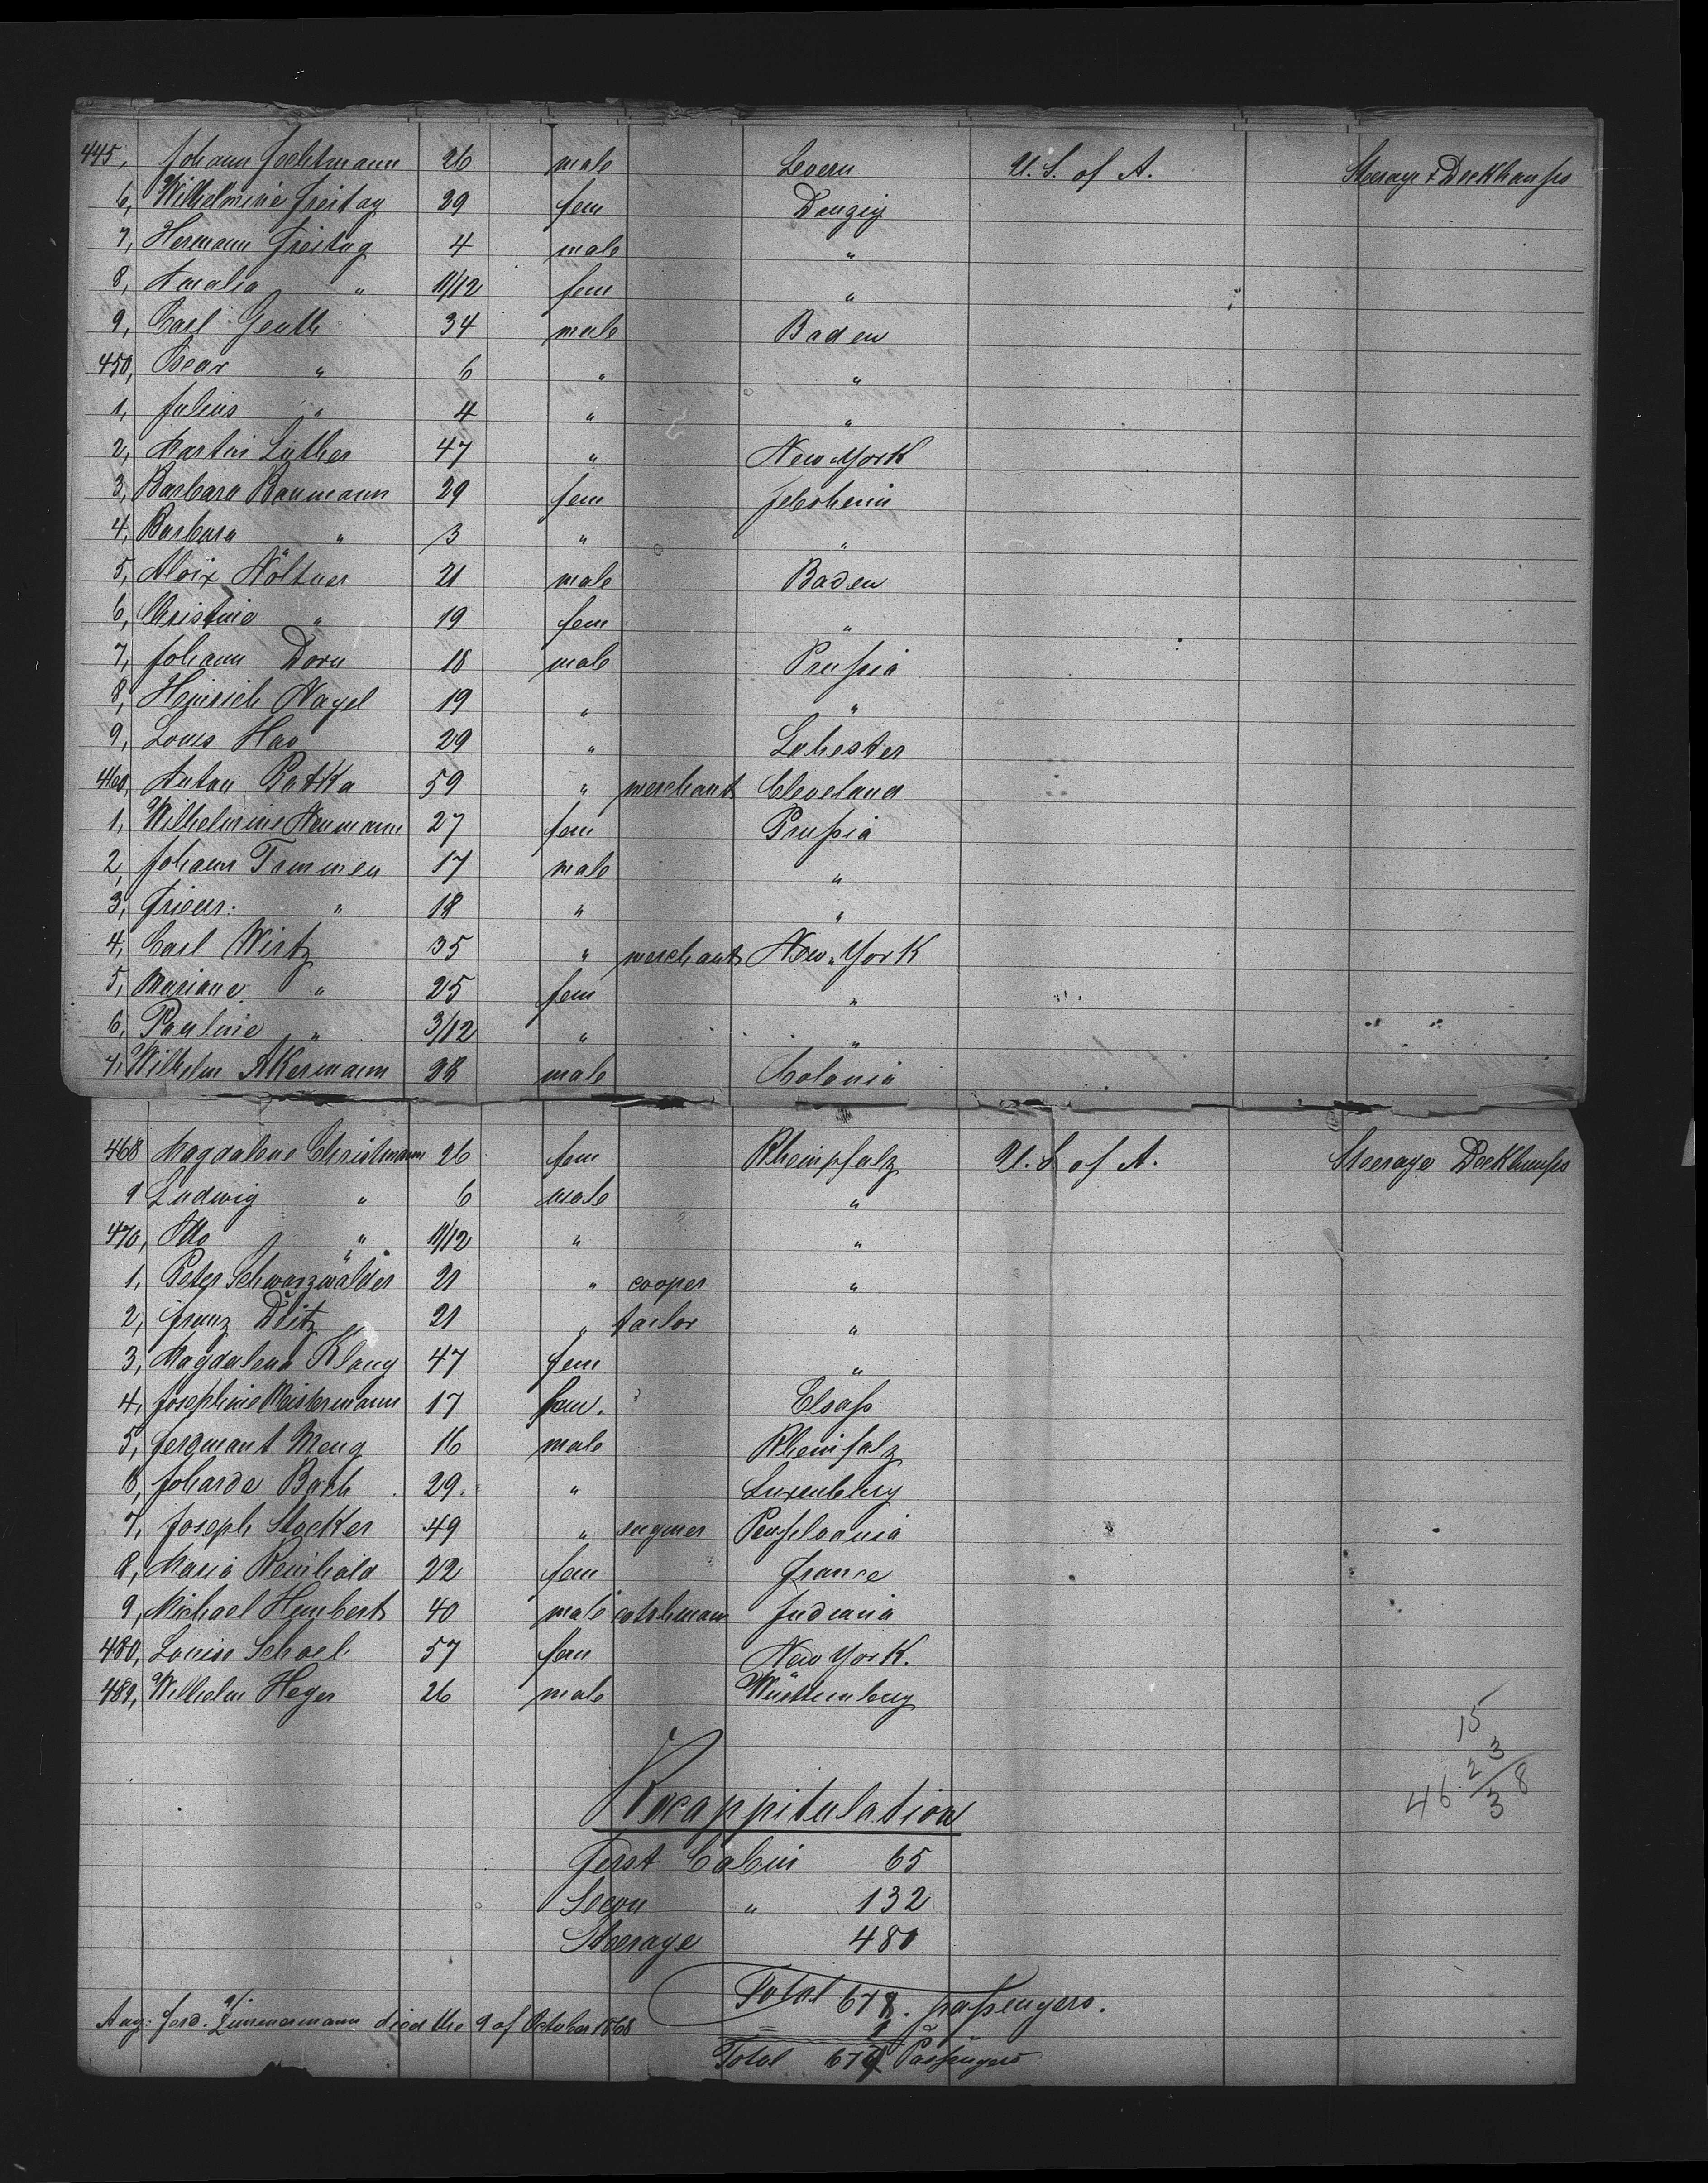 445, Johann Fochtmann 26 male Levern U. S. of A. Steerage & Deckhauss
6, Wilhelmine Freitag 29 fem Danzig
7, Hermann Freitag 4 male "
8, Amalia " 11/12 fem "
9, Carl Genth 34 male Baden
450, Oscar " 6 " "
1, Julius " 4 " "
2, Martin Luther 47 " New-York
3, Barbara Baumann 29 fem Jebsheim
4, Barbara " 3 " "
5, Aloix Höltner 21 male Baden
6, Christine " 19 fem "
7, Johann Dorn 18 male Prussia
8, Heinrich Nagel 19 " "
9, Louis Hao 29 "
460, Anton Botka 59 " merchant Cleveland
1, Wilhelmine Neumann 27 fem Prussia
2, Johann Tammen 17 male "
3, Friedr. " 18 " "
4, Carl Wirtz 35 " merchant New-York
5, Mariane " 25 fem "
6, Pauline " 3/12 " "
7, Wilhelm AKermann 28 male Colonia
468 Magdalene Christmann 26 fem Rheinpfalz U. S. of A. Steerage Deckhauss
9 Ludwig " 6 male "
470, Otto " 11/12 " "
1, Peter Schwarzwälder 21 " cooper "
2, Franz Deitz 21 " tailor "
3, Magdalena Klang 47 fem "
4, Josephine Meistermann 17 fem. Elsass
5, Ferdinant Meng 16 male Rheinfalz
6, Bach 29. " Luxemburg
7, Joseph Stocker 49 " Penssilvania
8, Maria Reinhold 22 fem France
9, Michael Humbert 40 male Indiana
480, Louise Schoel 57 fem New York.
481, Wilhelm Heyer 26 male Württemberg
15
3
2
46 3/8
Recappitulation
First Cabin 65
Secon " 132
Steerage 481
Total 678. passengers.
Aug: Ferd. Zimmermann died the 9 of October 1868
Total 677 Passengers